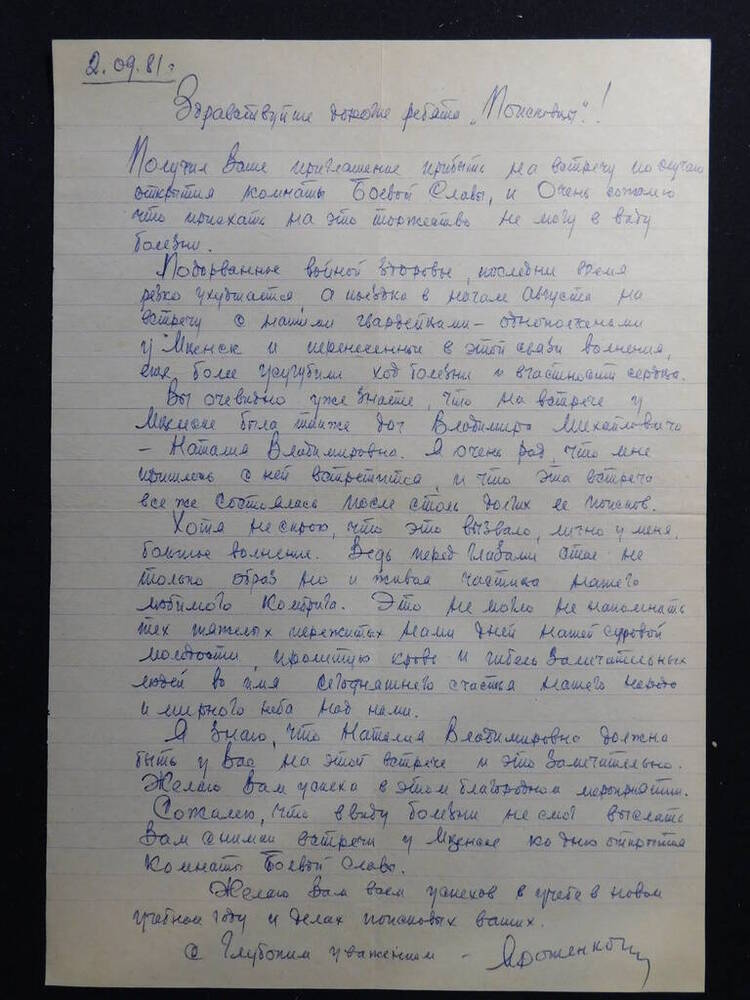 2.09.81г
Здравствуйте дорогие ребята "Поисковцы"!
Получил Ваше приглашение прибыть на встречу по случаю
открытия комнаты Боевой Славы, и Очень сожалею
что приехать на это торжество не могу в виду
болезни.
Подорванное войной здоровье, последни время
резко ухудшается, а поездка в начале Августа на
встречу с нашими гвардейцами – однополчанами
у Мценск и перенесенные в этой связи волнения,
еще более усугубили ход болезни и в частности сердца.
Вы очевидно уже знаете, что на встрече у
Мценске была также доч Владимира Михайловича
– Наталия Владимировна. Я очень рад, что мне
пришлось с ней встретится, и что эта встреча
все же состоялась после столь долгих ее поисков.
Хотя не скрою, что это вызвало, лично у меня,
большое волнение. Ведь перед глазами стал не
только образ но и живая частица нашего
любимого Комбрига. Это не могло не напомнать
тех тяжелых пережитых нами дней нашей суровой
молодости, пролитую кровь и гибель Замечательных
людей во имя сегодняшнего счастья нашего народа
и мирного неба над нами.
Я знаю, что Наталия Владимировна должна
быть у Вас на этой встрече и это Замечательно.
Желаю Вам успеха в этом благородном мероприятии.
Сожалею, что ввиду болезни не смог выслать
Вам снимки встречи у Мценске ко дню открытия
Комнаты Боевой Славы.
Желаю Вам всем успехов в учебе в новом
учебном году и делах поисковых ваших.
с Глубоким уважением –